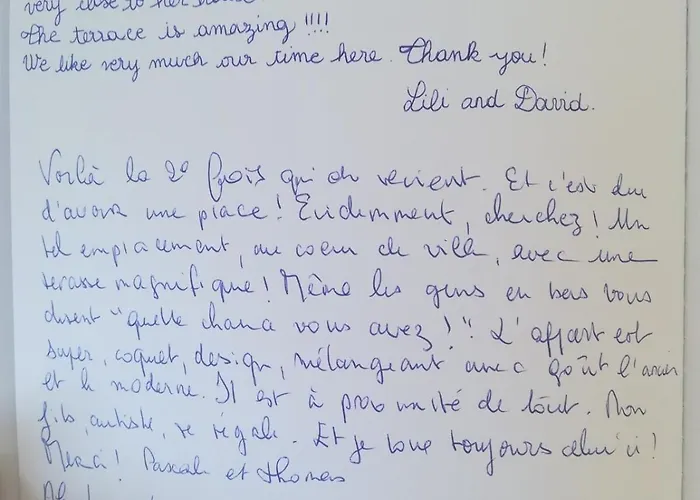 very close to her
the terrace is amazing !!!!
We like very much our time here. Thank you!
Lili and David.
Voilà la 2e fois qu'on revient. Et c'est dur
d'avoir une place! Évidemment, cherchez! Un
tel emplacement, au coeur de ville, avec une
terasse magnifique! Même les gens en bas vous
disent "quelle chance vous avez!". L'appart est
super, coquet, design, mélangeant avec goût l'ancien
et le moderne. Il est à proximité de tout. Mon
fils, autiste, se régale. Et je loue toujours celui ci!
Merci! Pascale et Thomas